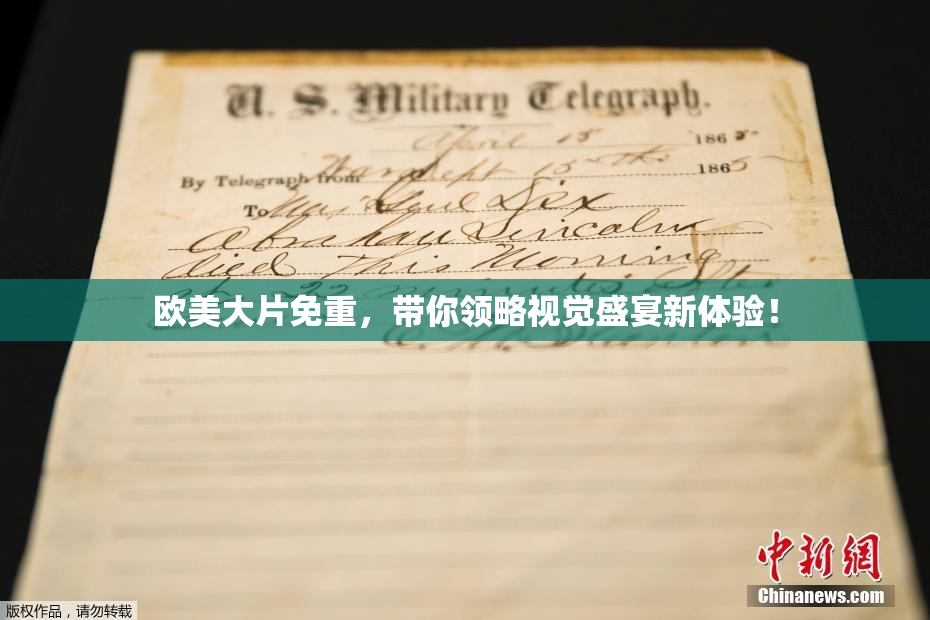 U. S. Military Telegraph.
April 15 1865-
By Telegraph from War Dept 15th 1865
To Maj Genl Dix
Abraham Lincoln
died This Morning
at 22 minutes after
欧美大片免重，带你领略视觉盛宴新体验！
E. M. Stanton
中新网
Chinanews.com
版权作品，请勿转载